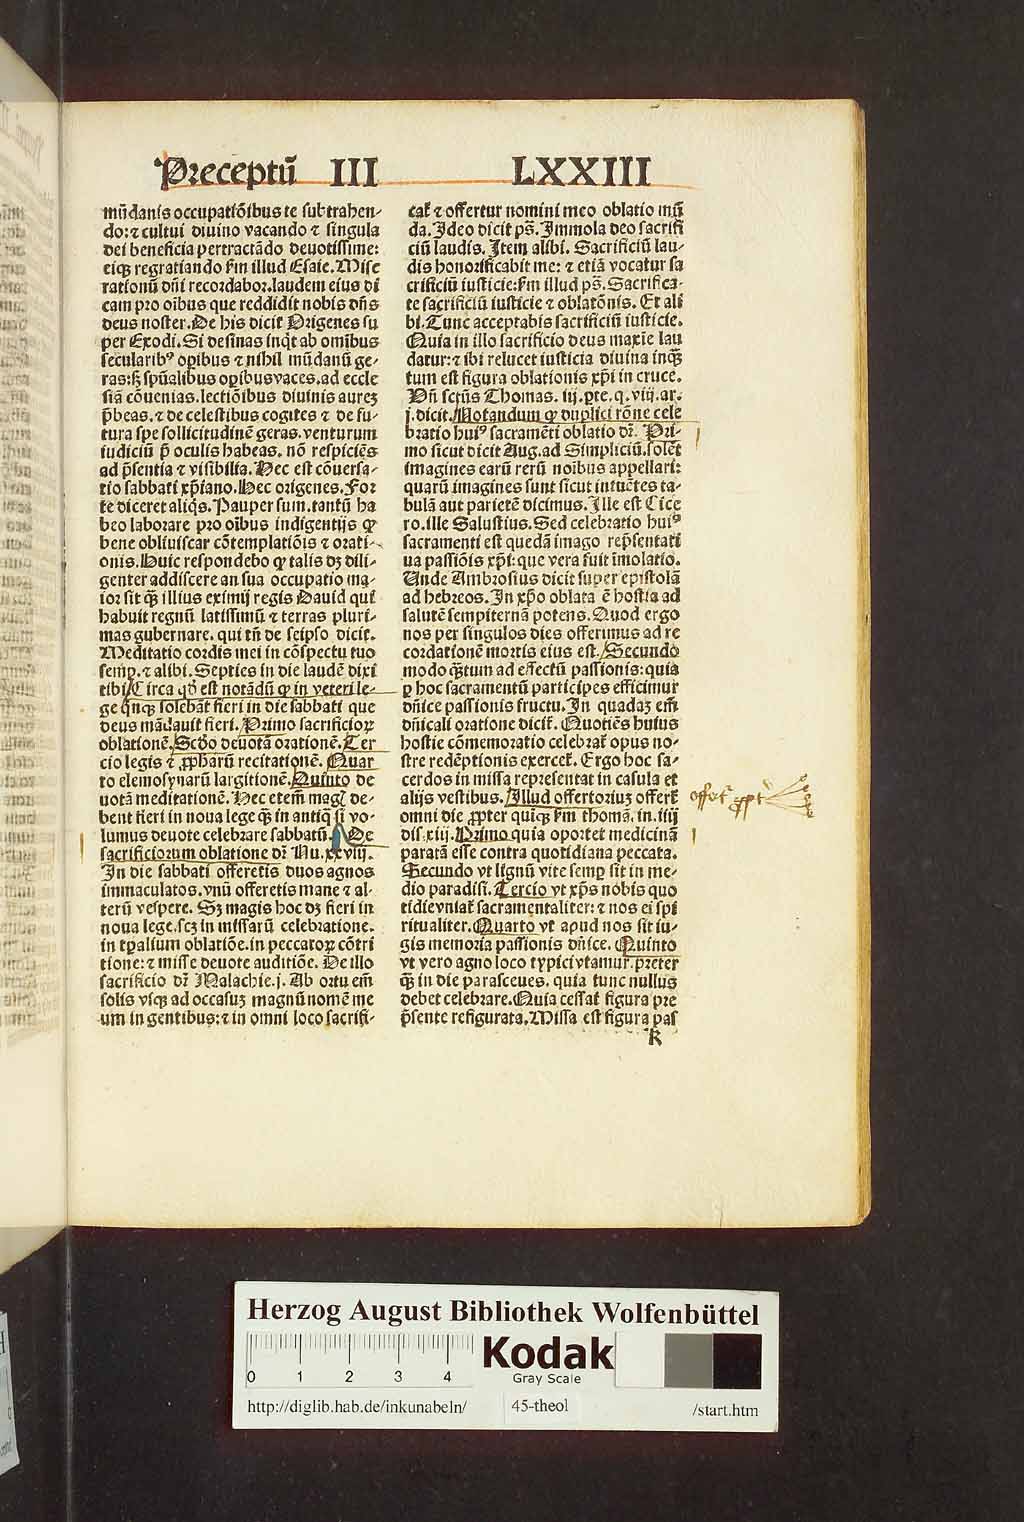 Preceptū III LXXIII
mūdanis occupatiōibus te subtrahen-
do: ⁊ cultui diuino vacando ⁊ singula
dei beneficia pertractādo deuotissime:
eiqꝫ regratiando fm illud Esaie. Mise
rationū dñi recordabor. laudem eius di
cam pro oībus que reddidit nobis dñs
deus noster. De his dicit Origenes su
per Exodi. Si desinas inqͥt ab omībus
secularibꝰ oꝑibus ⁊ nihil mūdanū ge-
ras: sꝫ spūalibus oꝑibus vaces. ad eccle
siā cōuenias. lectiōibus diuinis aurez
p̄beas. ⁊ de celestibus cogites ⁊ de fu-
tura spe sollicitudinē geras. venturum
iudiciū p̄ oculis habeas. nō respiciēs
ad p̄sentia ⁊ visibilia. Hec est cōuersa-
tio sabbati xp̄iano. Hec origenes. For
te diceret aliqͥs. Pauper sum. tantū ha
beo laborare pro oībus indigentijs ꝙ
bene obliuiscar cōtemplatiōis ⁊ orati-
onis. Huic respondebo ꝙ talis dꝫ dili-
genter addiscere an sua occupatio ma-
ior sit qͣꝫ illius eximij regis Dauid qui
habuit regnū latissimū ⁊ terras pluri-
mas gubernare. qui tn̄ de seipso dicit.
Meditatio cordis mei in cōspectu tuo
semꝑ. ⁊ alibi. Septies in die laudē dixi
tibi. Circa qd̓ est notādū ꝙ in veteri le-
ge qͥnqꝫ solebāt fieri in die sabbati que
deus mādauit fieri. Primo sacrificioꝝ
oblationē. Scd̓o deuotā orationē. Ter
cio legis ⁊ ꝓph̓arū recitationē. Quar
to elemosynarū largitionē. Quinto de
uotā meditationē. Hec etem̄ magꝭ de-
bent fieri in noua lege qͣꝫ in antiqͣ si vo-
lumus deuote celebrare sabbatū. De
sacrificiorum oblatione dr̄ Nu. xxviij.
In die sabbati offeretis duos agnos
immaculatos. vnū offeretis mane ⁊ al-
terū vespere. Sꝫ magis hoc dꝫ fieri in
noua lege. scꝫ in missarū celebratione.
in tꝑalium oblatiōe. in peccatoꝝ cōtri
tione: ⁊ misse deuote auditiōe. De illo
sacrificio dr̄ Malachie. j. Ab ortu em̄
solis vsqꝫ ad occasuꝫ magnū nomē me
um in gentibus: ⁊ in omni loco sacrifi-
cat̄ ⁊ offertur nomini meo oblatio mū
da. Ideo dicit ps̄. Immola deo sacrifi
ciū laudis. Item alibi. Sacrificiū lau-
dis honorificabit me: ⁊ etiā vocatur sa
crificiū iusticie: fm illud ps̄. Sacrifica-
te sacrificiū iusticie ⁊ oblatōnis. Et ali
bi. Tunc acceptabis sacrificiū iusticie.
Quia in illo sacrificio deus maxīe lau
datur: ⁊ ibi relucet iusticia diuina inqͣꝫ
tum est figura oblationis xp̄i in cruce.
Vn̄ sctūs Thomas. iij. pte. q. viij. ar.
j. dicit. Notandum ꝙ duplici rōne cele
bratio huiꝰ sacramēti oblatio dr̄. Pri-
mo sicut dicit Aug. ad Simpliciū. solēt
imagines earū rerū noībus appellari:
quarū imagines sunt sicut intuētes ta-
bulā aut parietē dicimus. Ille est Cice
ro. ille Salustius. Sed celebratio huiꝰ
sacramenti est quedā imago rep̄sentati
ua passiōis xp̄i: que vera fuit īmolatio.
Unde Ambrosius dicit super epistolā
ad hebreos. In xp̄o oblata ē hostia ad
salutē sempiternā potens. Quod ergo
nos per singulos dies offerimus ad re
cordationē mortis eius est. Secundo
modo qͣꝫtum ad effectū passionis: quia
ꝑ hoc sacramentū participes efficimur
dn̄ice passionis fructu. In quadaꝫ em̄
dn̄icali oratione dicit̄. Quotiēs huius
hostie cōmemoratio celebrat̄ opus no-
stre redēptionis exercet̄. Ergo hoc sa-
cerdos in missa representat in casula et
alijs vestibus. Illud offertoriuꝫ offert̄
omni die ꝓpter quīqꝫ fm thomā. in. iiij
dis. xiij. Primo quia oportet medicinā
paratā esse contra quotidiana peccata.
Secundo vt lignū vite semꝑ sit in me-
dio paradisi. Tercio vt xp̄s nobis quo
tidie vniat̄ sacramentaliter: ⁊ nos ei spi
ritualiter. Quarto vt apud nos sit iu-
gis memoria passionis dn̄ice. Quinto
vt vero agno loco typici vtamur. preter
qͣꝫ in die parasceues. quia tunc nullus
debet celebrare. Quia cessat figura pre
p̄sente refigurata. Missa est figura pas
k
Herzog August Bibliothek Wolfenbüttel
0 1 2 3 4
Kodak
Gray Scale
http://diglib.hab.de/inkunabeln/ 45-theol /start.htm